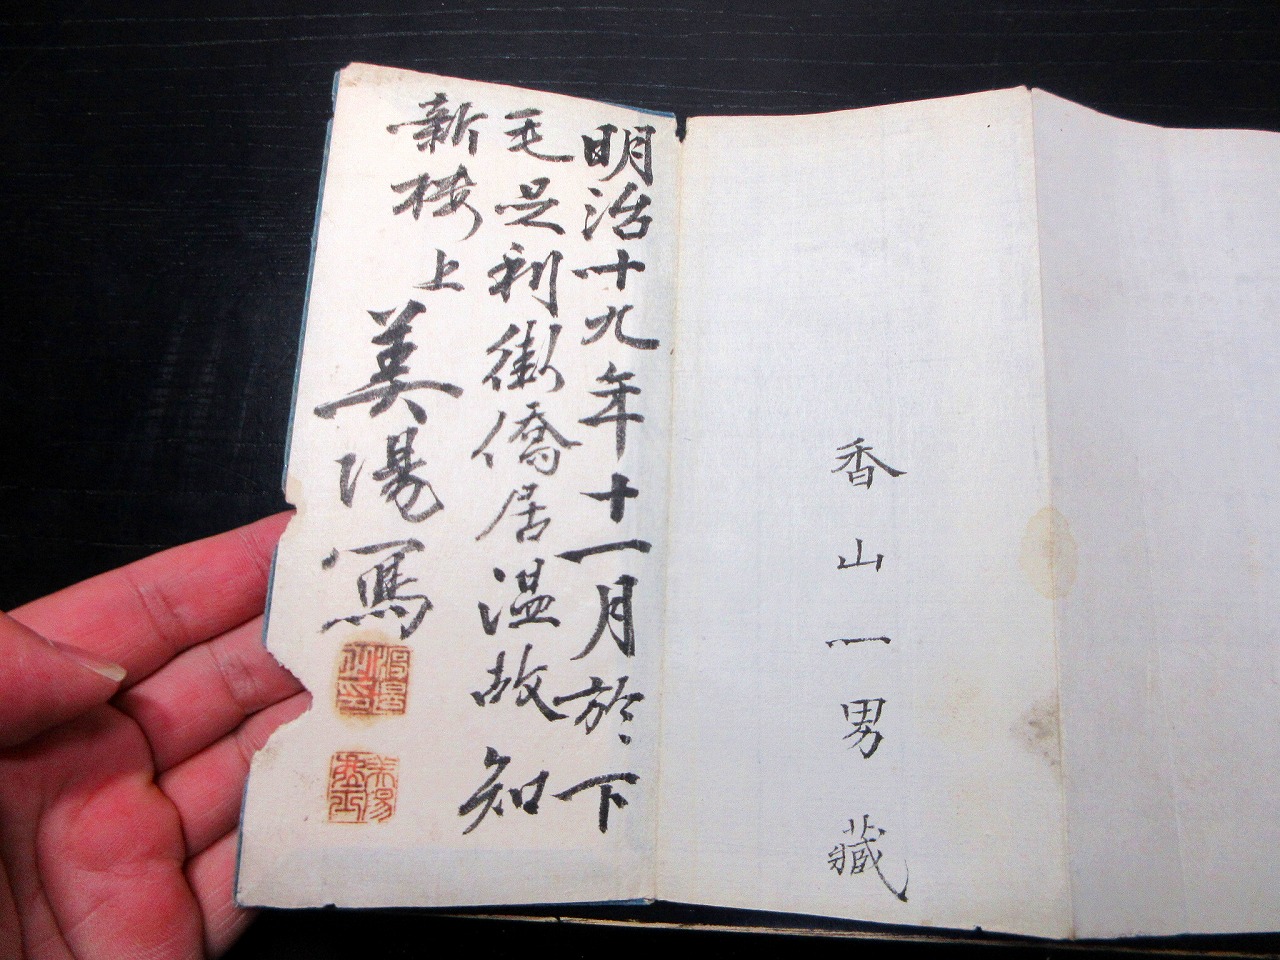 香山一男藏
明治十九年十一月於下
毛足利街僑居温故知
新楼上美陽寫